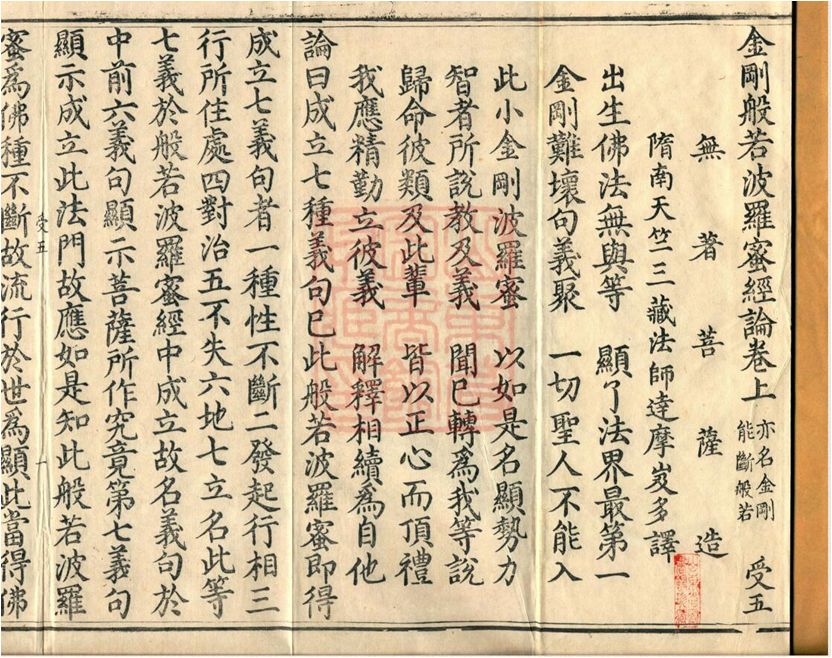 金剛般若波羅蜜經論卷上 亦名金剛能斷般若 受五
無著菩薩造
隋南天竺三藏法師達摩岌多譯
出生佛法無與等 顯了法界最第一
金剛難壞句義聚 一切聖人不能入
此小金剛波羅蜜 以如是名顯勢力
智者所說教及義 聞已轉為我等說
歸命彼類及此輩 皆以正心而頂禮
我應精勤立彼義 解釋相續為自他
論曰成立七種義句已此般若波羅蜜即得
成立七義句者一種性不斷二發起行相三
行所住處四對治五不失六地七立名此等
七義於般若波羅蜜經中成立故名義句於
中前六義句顯示菩薩所作究竟第七義句
顯示成立此法門故應如是知此般若波羅
受五 一
蜜為佛種不斷故流行於世為顯此當得佛